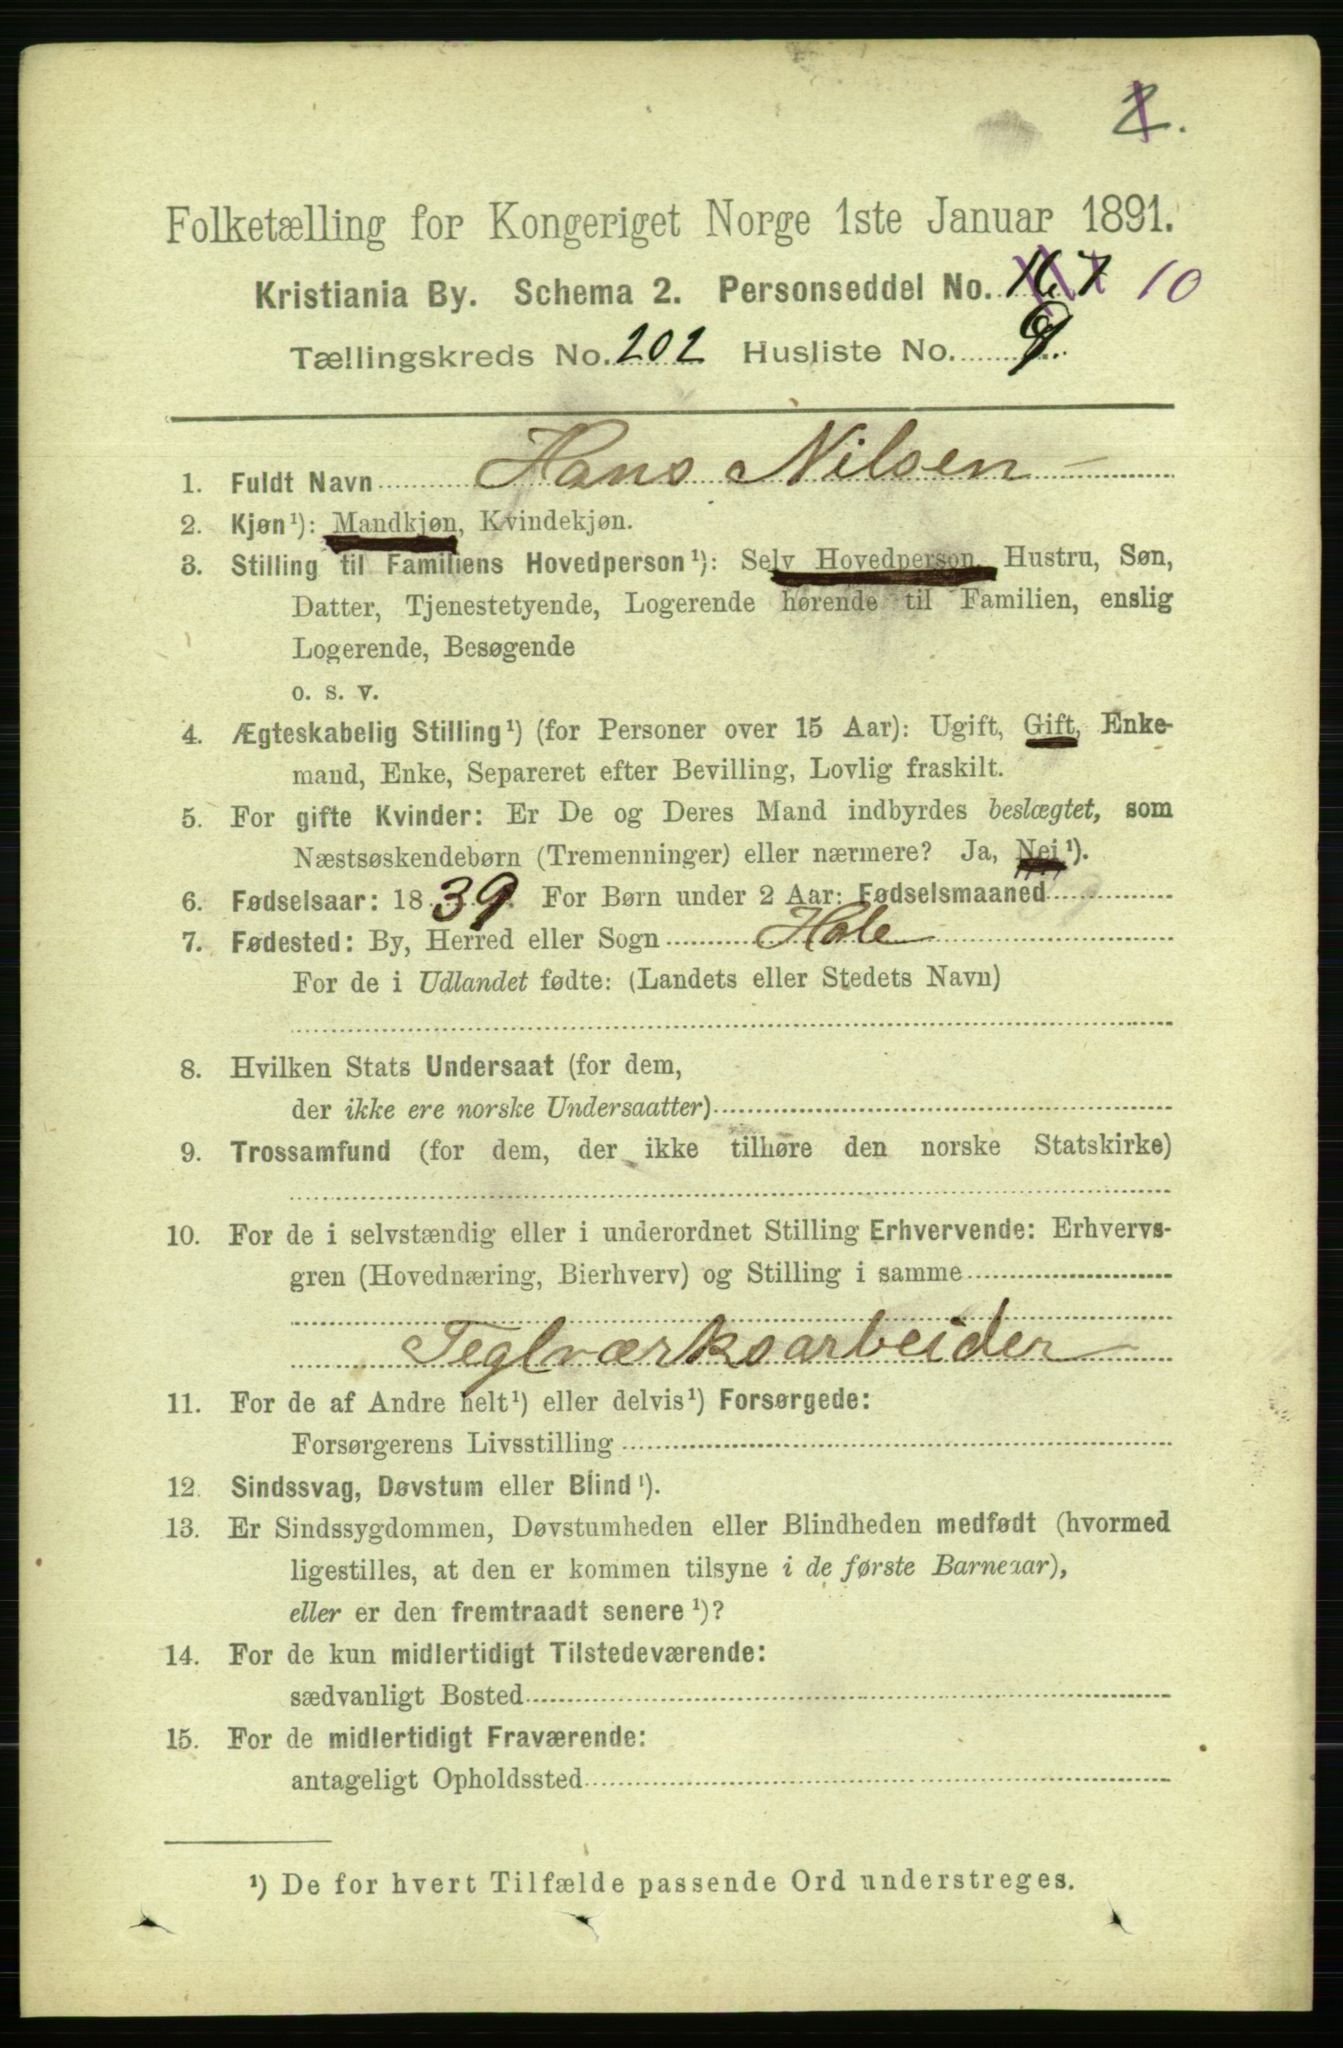 2.
Folketælling for Kongeriget Norge 1ste Januar 1891.
Kristiania By. Schema 2. Personseddel No. 10
Tællingskreds No. 202 Husliste No. 9.
1. Fuldt Navn Hans Nilsen
2. Kjøn¹): Mandkjøn, Kvindekjøn.
3. Stilling til Familiens Hovedperson¹): Selv Hovedperson, Hustru, Søn,
Datter, Tjenestetyende, Logerende hørende til Familien, enslig
Logerende, Besøgende
o. s. v.
4. Ægteskabelig Stilling¹) (for Personer over 15 Aar): Ugift, Gift, Enke-
mand, Enke, Separeret efter Bevilling, Lovlig fraskilt.
5. For gifte Kvinder: Er De og Deres Mand indbyrdes beslægtet, som
Næstsøskendebørn (Tremenninger) eller nærmere? Ja, Nei¹).
6. Fødselsaar: 1839. For Børn under 2 Aar: Fødselsmaaned
7. Fødested: By, Herred eller Sogn Hole
For de i Udlandet fødte: (Landets eller Stedets Navn)
8. Hvilken Stats Undersaat (for dem,
der ikke ere norske Undersaatter)
9. Trossamfund (for dem, der ikke tilhøre den norske Statskirke)
10. For de i selvstændig eller i underordnet Stilling Erhvervende: Erhvervs-
gren (Hovednæring, Bierhverv) og Stilling i samme
Teglværksarbeider
11. For de af Andre helt¹) eller delvis¹) Forsørgede:
Forsørgerens Livsstilling
12. Sindssvag, Døvstum eller Blind¹).
13. Er Sindssygdommen, Døvstumheden eller Blindheden medfødt (hvormed
ligestilles, at den er kommen tilsyne i de første Barneaar),
eller er den fremtraadt senere¹)?
14. For de kun midlertidigt Tilstedeværende:
sædvanligt Bosted
15. For de midlertidigt Fraværende:
antageligt Opholdssted
¹) De for hvert Tilfælde passende Ord understreges.